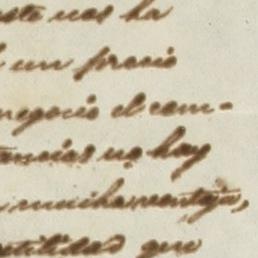 este nos ha
un precio
negocio el com-
tancias no hay
mucha ventaja,
utilidad que